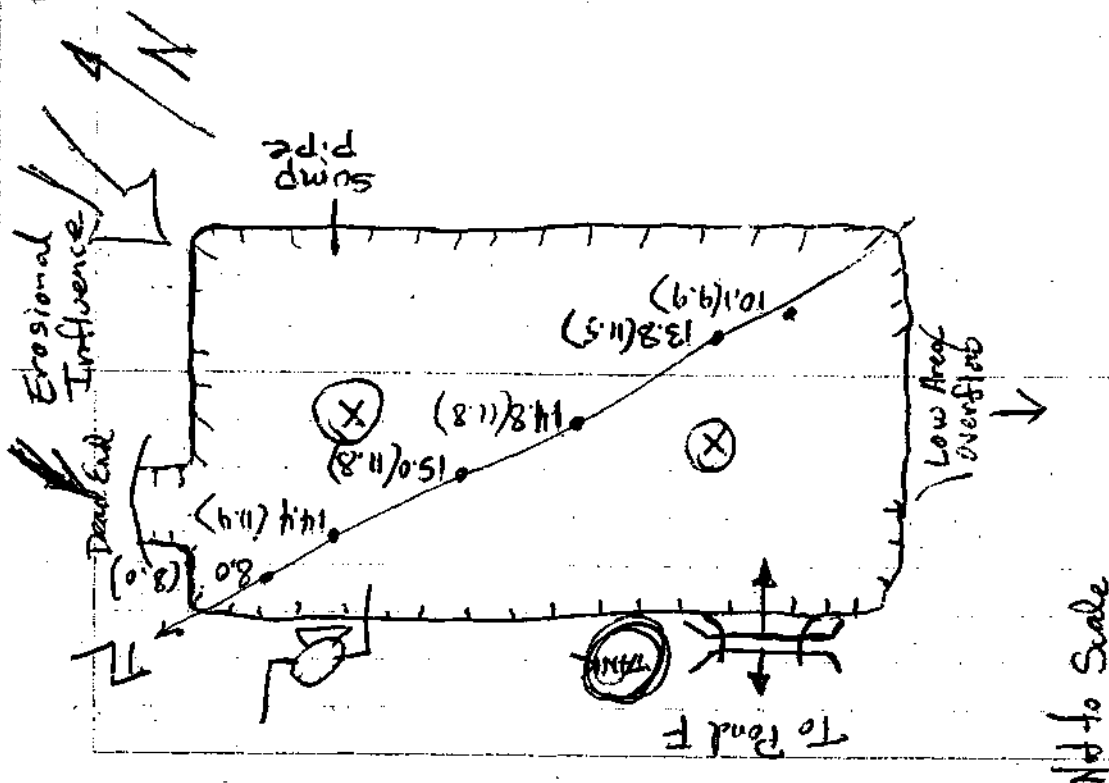 N
Erosional
Influence
sump
pipe
Dead End
(8.0)
8.0
14.4 (11.4)
15.0 (11.8)
14.8 (11.8)
13.8 (11.5)
10.1 (9.9)
X
X
Low Area
overflow
TANK
To Pond F
Not to Scale